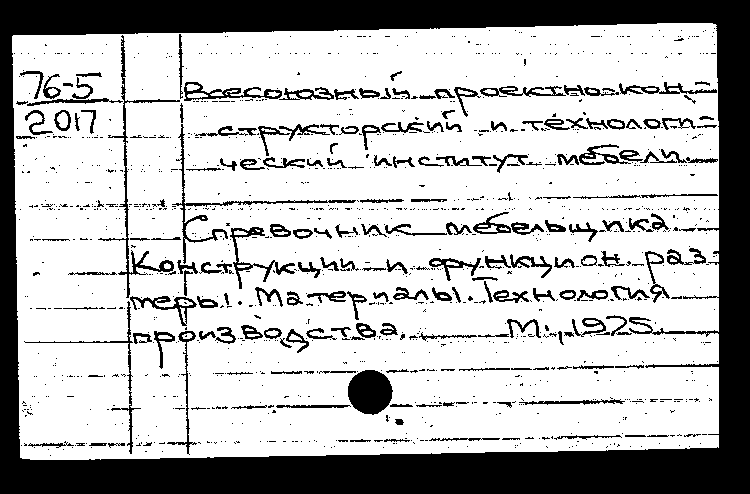 76-5
2017
Всесоюзный проектно-кон-
структорский и технологи-
ческий институт мебели.
Справочник мебельщика.
Конструкции и функцион. раз-
меры. Материалы. Технология
производства. М., 1975.